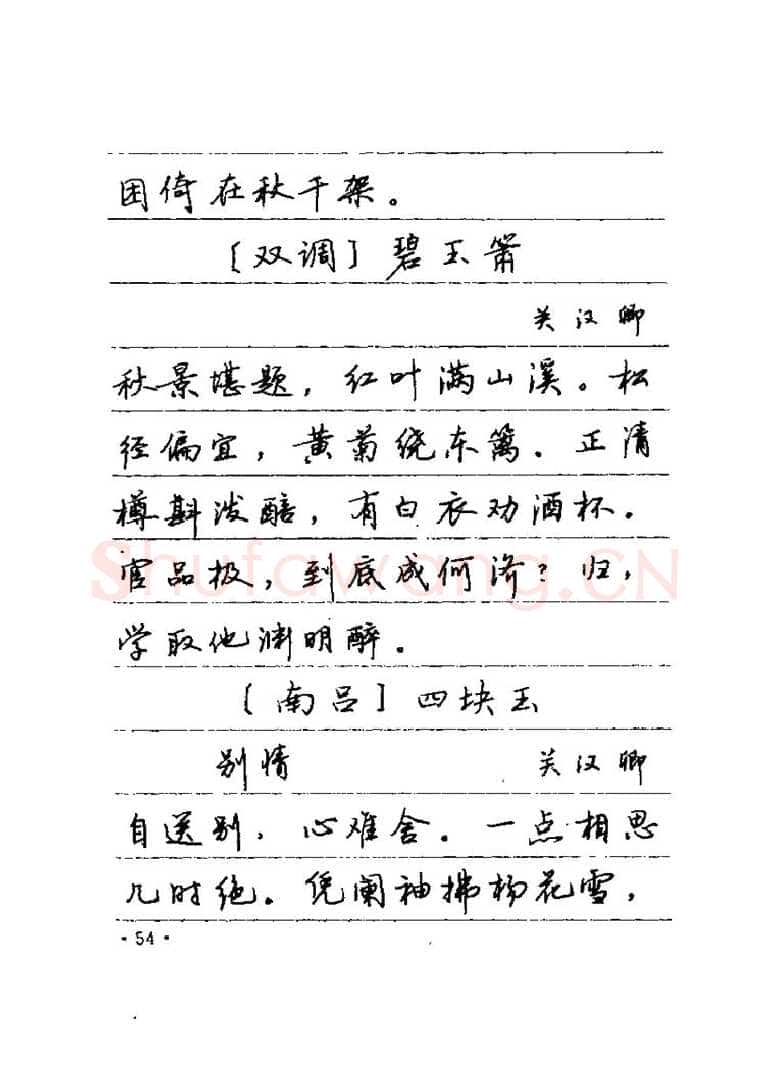 困倚在秋千架。
〔双调〕碧玉箫
关汉卿
秋景堪题，红叶满山溪。松
径偏宜，黄菊绕东篱。正清
樽斟泼醅，有白衣劝酒杯。
官品极，到底成何济？归，
学取他渊明醉。
〔南吕〕四块玉
别情 关汉卿
自送别，心难舍。一点相思
几时绝。凭阑袖拂杨花雪，
·54·
Shufawang.CN